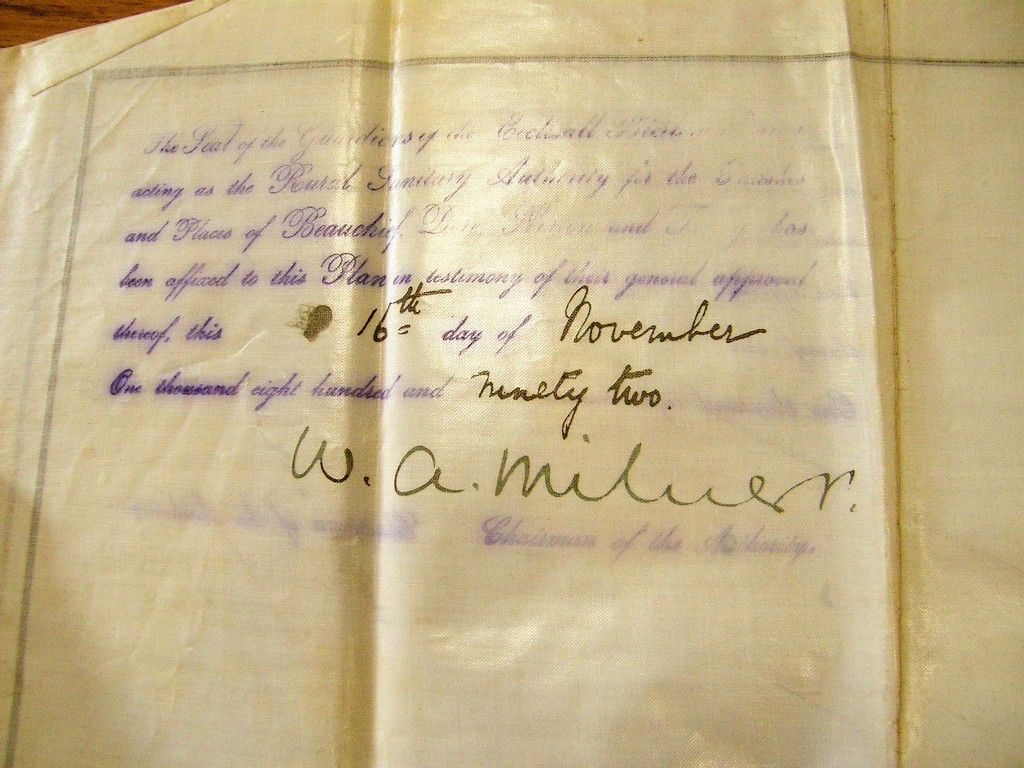 The Seal of the Guardians of the Ecclesall
acting as the Rural Sanitary Authority for the Parishes
and Places of Beauchief, Dore, and has
been affixed to this Plan in testimony of their general approval
thereof, this 16th day of November
One thousand eight hundred and ninety two.
W. A. Milner.
Chairman of the Authority.